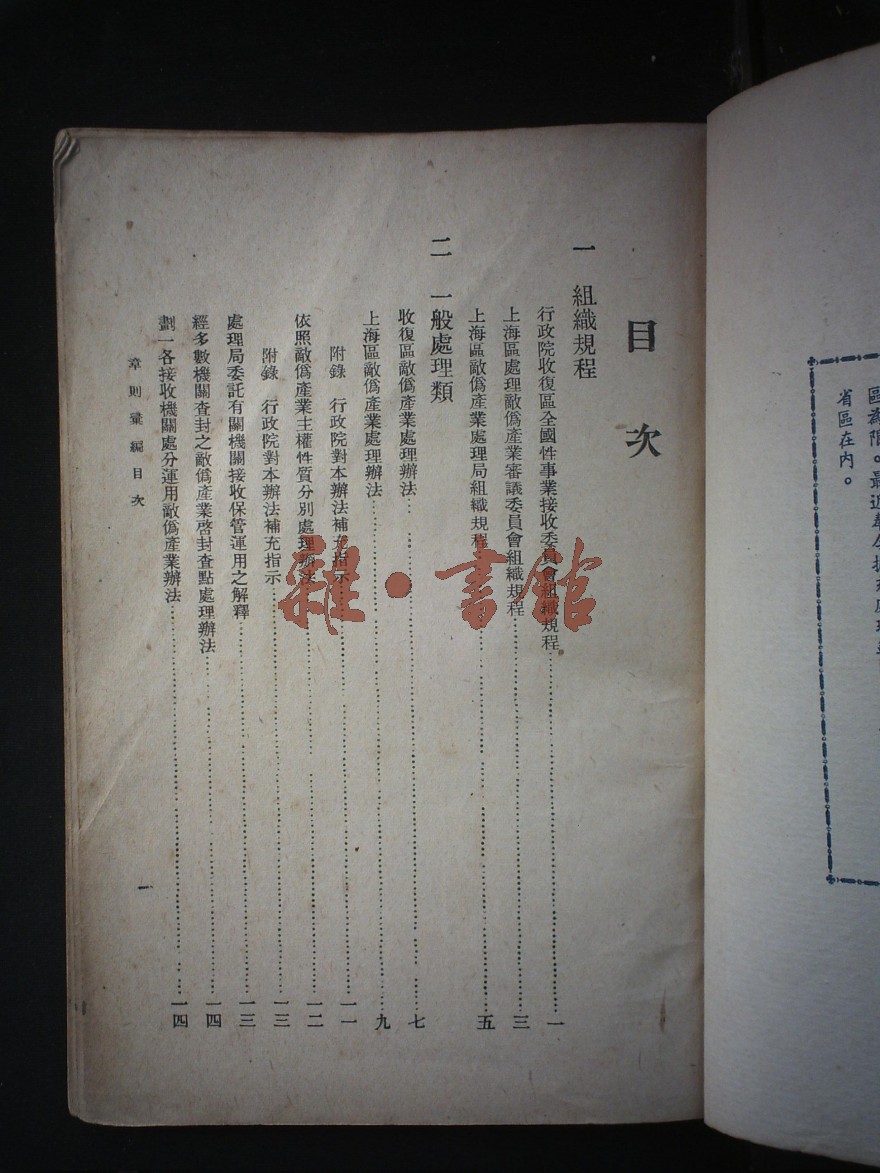 區為限。最近奉令
省區在內。
目次
一 組織規程
行政院收復區全國性事業接收委員會組織規程……一
上海區處理敵僞產業審議委員會組織規程……三
上海區敵僞產業處理局組織規程……五
二 一般處理類
收復區敵僞產業處理辦法……七
上海區敵僞產業處理辦法……九
附錄 行政院對本辦法補充指示……一一
依照敵僞產業主權性質分別處理辦法……一二
附錄 行政院對本辦法補充指示……一三
處理局委託有關機關接收保管運用之解釋……一三
經多數機關查封之敵僞產業啓封查點處理辦法……一四
劃一各接收機關處分運用敵僞產業辦法……一四
章則彙編目次
一
雜·書館